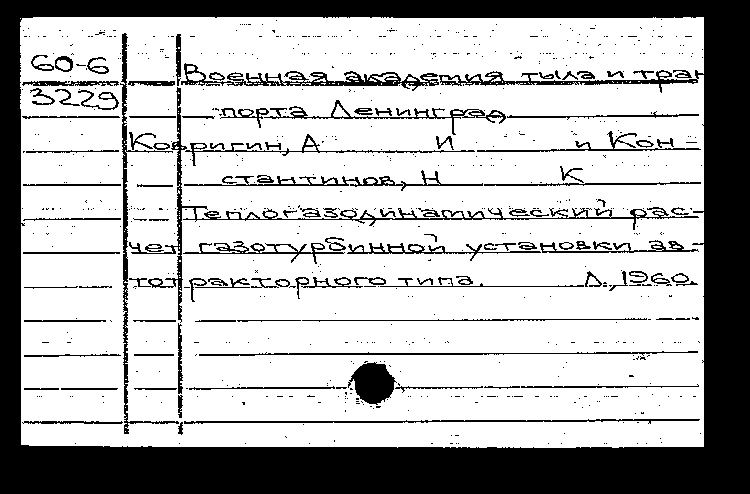 60-6 Военная академия тыла и тран
3229 порта Ленинград
Ковригин, А И и Кон-
стантинов, Н К
Теплогазодинамический рас-
чет газотурбинной установки ав-
тотракторного типа. Л., 1960.